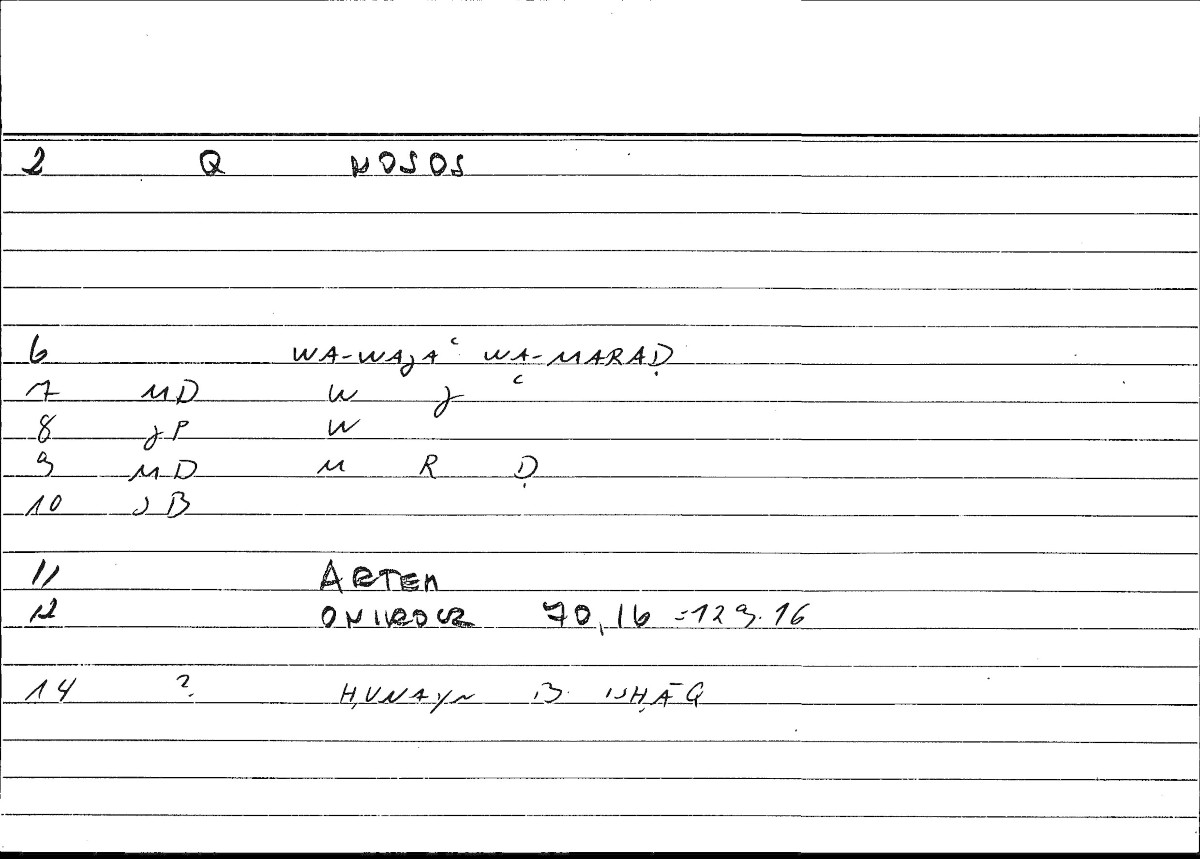 2 Q NOSOS
6 WA-WAJAʿ WA-MARAḌ
7 MD W J ʿ
8 JP W
9 MD M R Ḍ
10 JB
11 ARTEM
12 ONIROCR 70,16 =129.16
14 ? ḤUNAYN B. ISḤĀQ